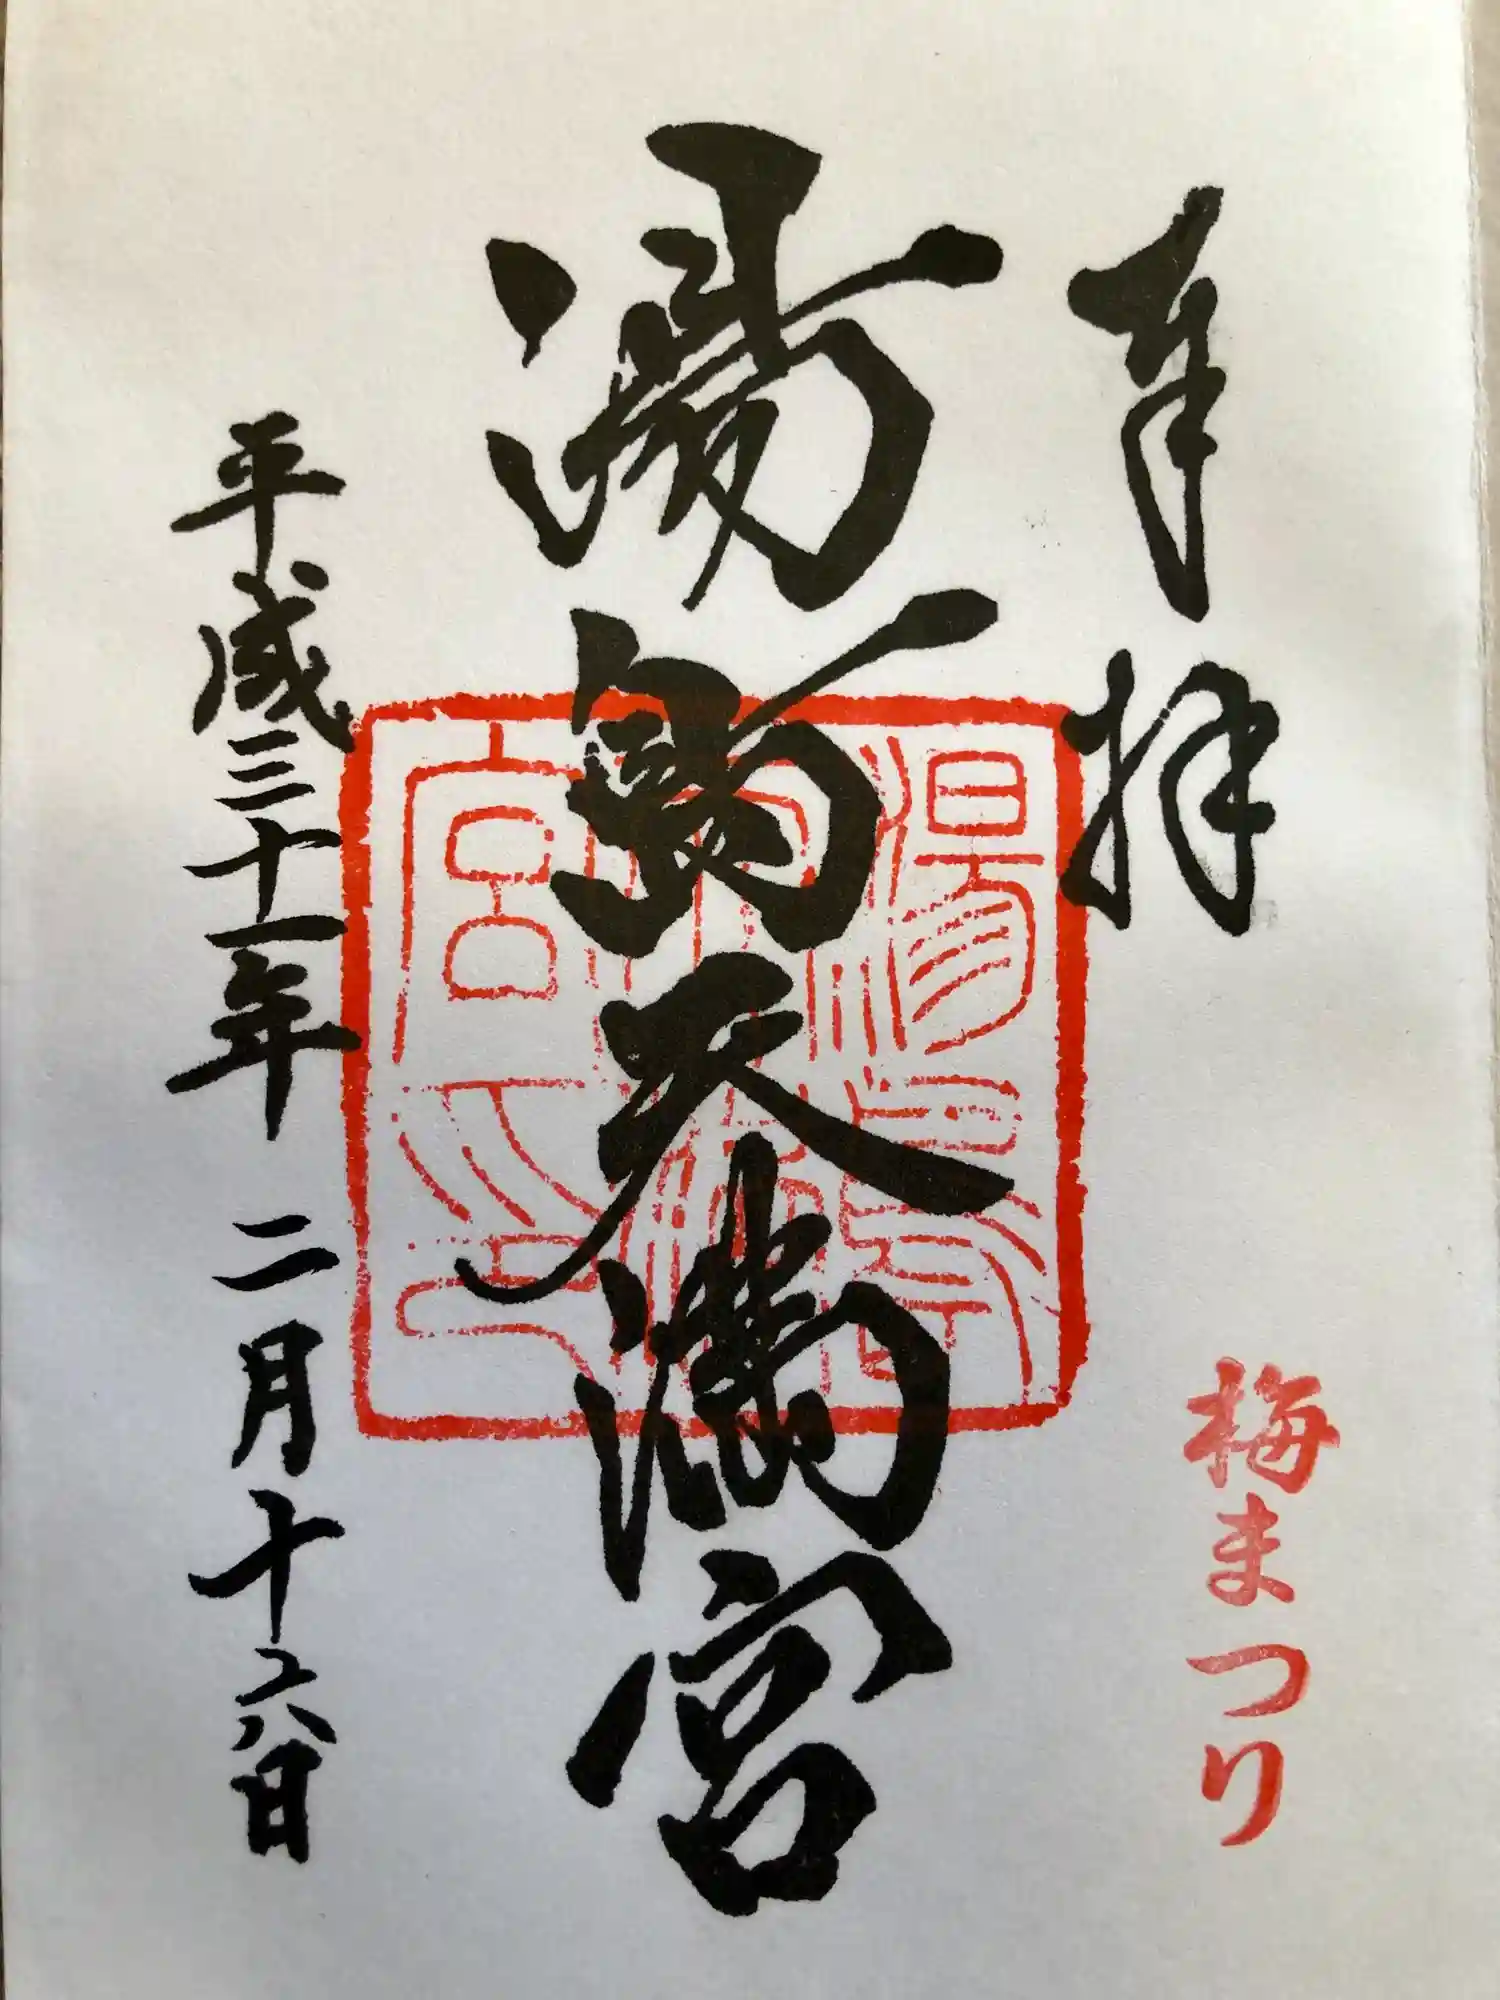 奉拝
梅まつり
湯島天満宮
湯島天満宮
平成三十一年 二月十六日